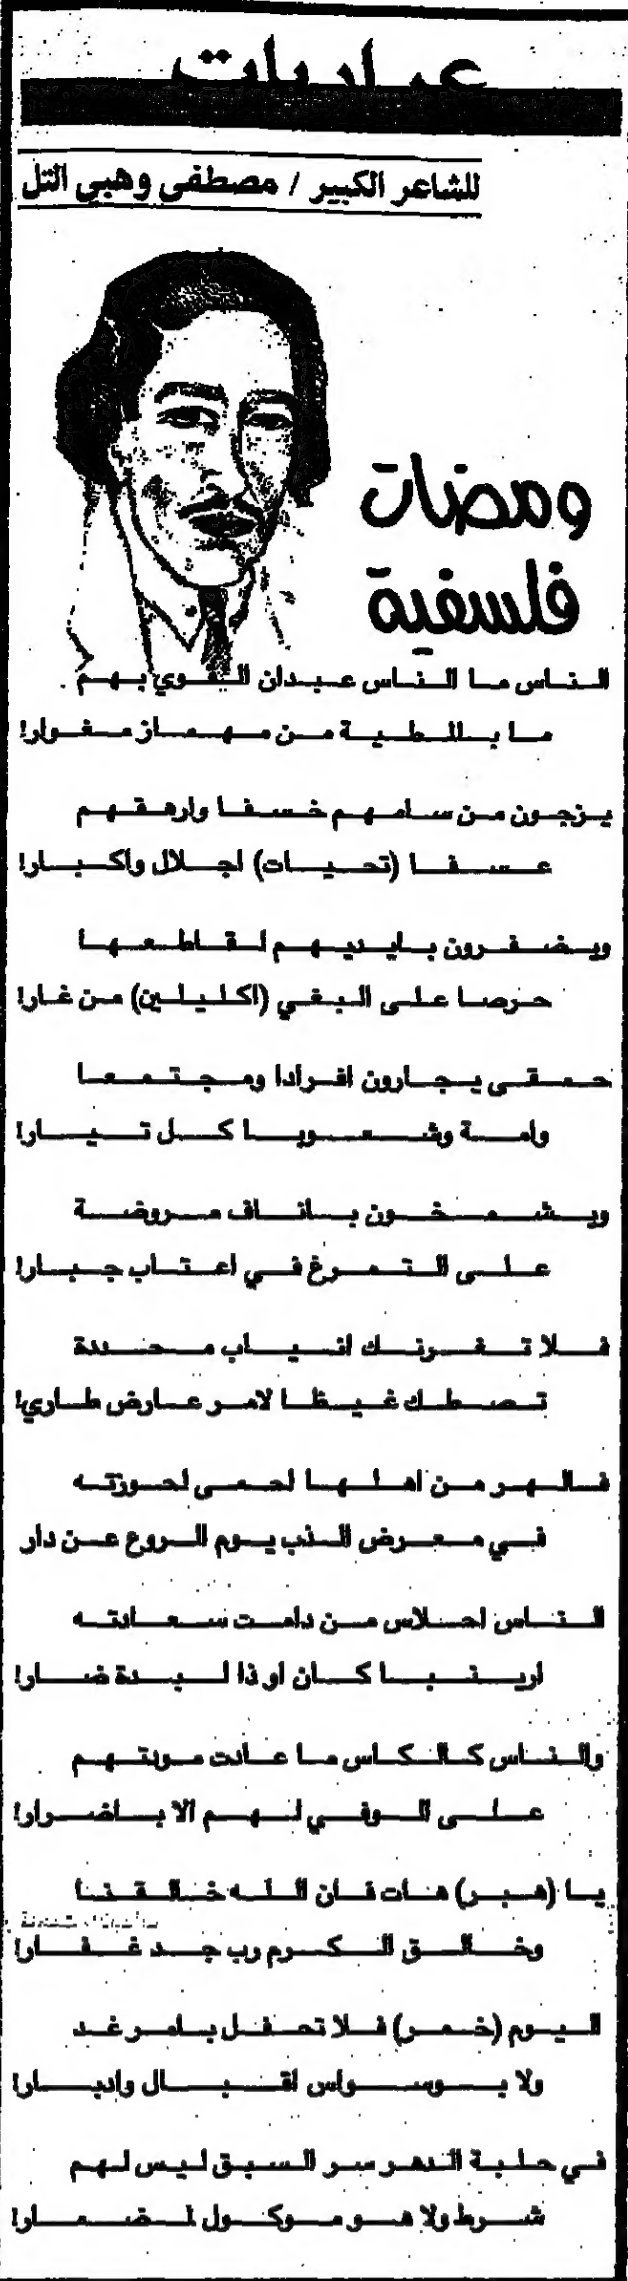 عراريات
للشاعر الكبير / مصطفى وهبي التل
ومضات
فلسفية
الناس ما الناس عبدان القوي بهم
ما بالمطية من مهماز مغوار!
يزجون من سامهم خسفا وارهقهم
عسفا (تحيات) اجلال واكبار!
ويضفرون بايديهم لقاطعها
حرصا على البغي (اكليلين) من غار!
حمقى يجارون افرادا ومجتمعا
وامة وشعوبا كل تيار!
ويشمخون باناف مروضة
على التمرغ في اعتاب جبار!
فلا تغرنك انياب محددة
تصطك غيظا لامر عارض طاري!
فالهر من اهلها احمى لحوزته
في معرض الذب يوم الروع عن دار
الناس احلاس من دامت سعادته
ارينبا كان او ذا لبدة ضار!
والناس كالكاس ما عادت مودتهم
على الوفي لهم الا باضرار!
يا (هبر) هات فان الله خالقنا
وخالق الكرم رب جد غفار!
اليوم (خمر) فلا تحفل بامر غد
ولا بوسواس اقبال وادبار!
في حلبة الدهر سر السبق ليس لهم
شرط ولا هو موكول لمضمار!